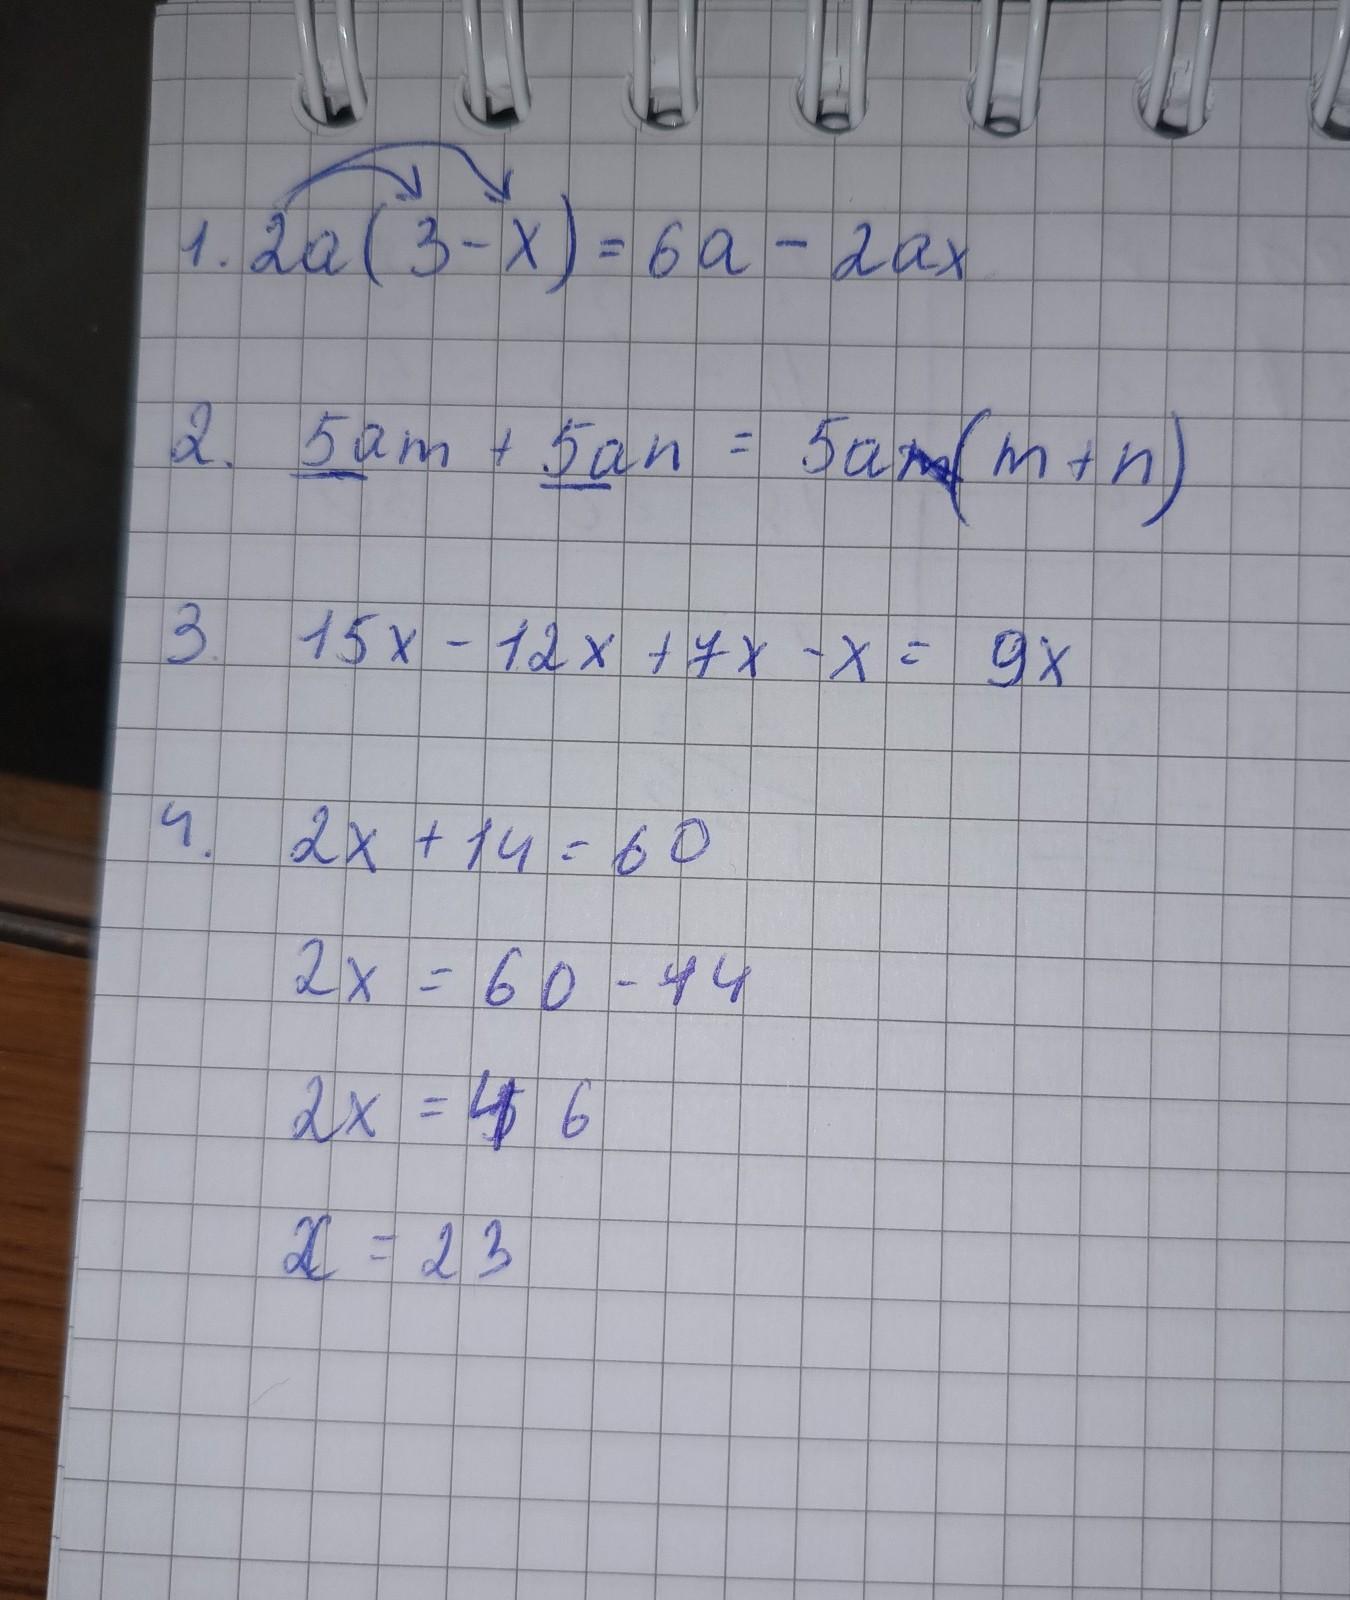 1. 2a(3-x)=6a-2ax
2. 5am + 5an = 5a(m+n)
3. 15x-12x+7x-x= 9x
4. 2x+14=60
2x = 60-14
2x = 46
x = 23